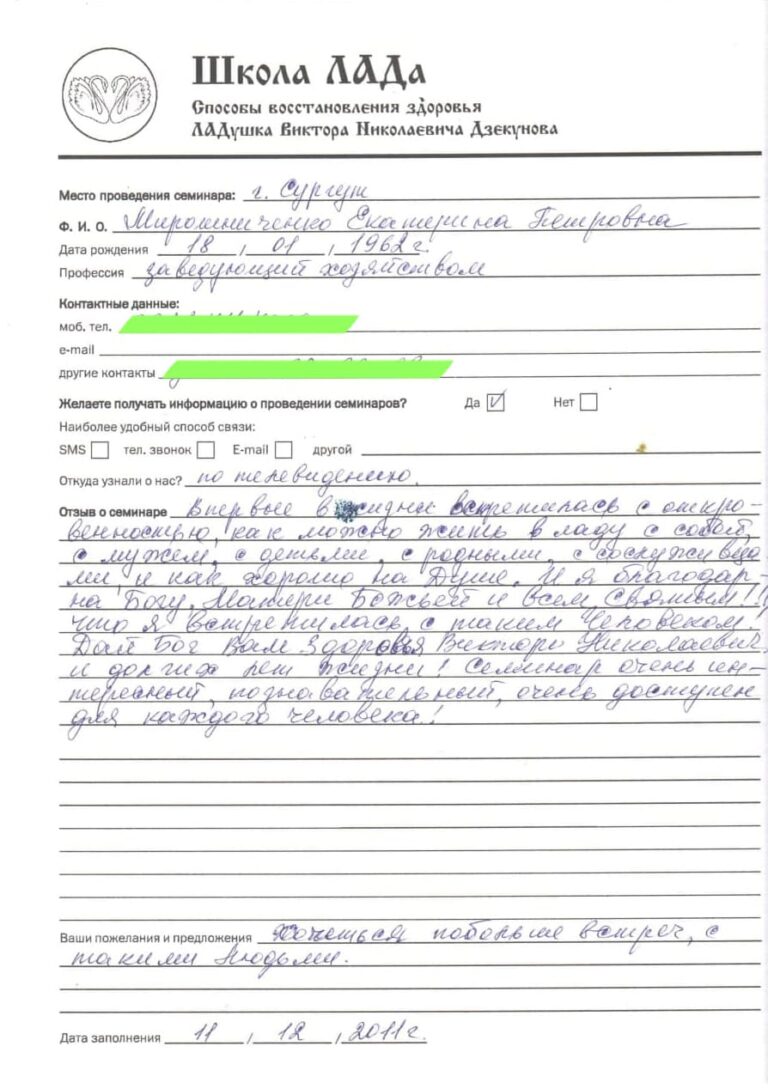 Школа ЛАДа
Способы восстановления здоровья
ЛАДушка Виктора Николаевича Дзекунова
Место проведения семинара: г. Сургут
Ф. И. О. Мирошниченко Екатерина Петровна
Дата рождения 18 / 01 / 1962 г.
Профессия заведующий хозяйством
Контактные данные:
моб. тел.
e-mail
другие контакты
Желаете получать информацию о проведении семинаров? Да Нет
Наиболее удобный способ связи:
SMS тел. звонок E-mail другой
Откуда узнали о нас? по телевидению.
Отзыв о семинаре Впервые в жизни встретилась с откро-
венностью, как можно жить в ладу с собой,
с мужем, с детьми, с родными, с сослуживца
ми, и как хорошо на Душе. И я благодар-
на Богу, Матери Божьей и всем Святым!!!
что я встретилась с таким Человеком!
Дай Бог Вам Здоровья Виктор Николаевич,
и долгих лет жизни! Семинар очень ин-
тересный, познавательный, очень доступен
для каждого человека!
Ваши пожелания и предложения Хочеться побольше встреч, с
такими Людьми.
Дата заполнения 11 / 12 / 2011 г.